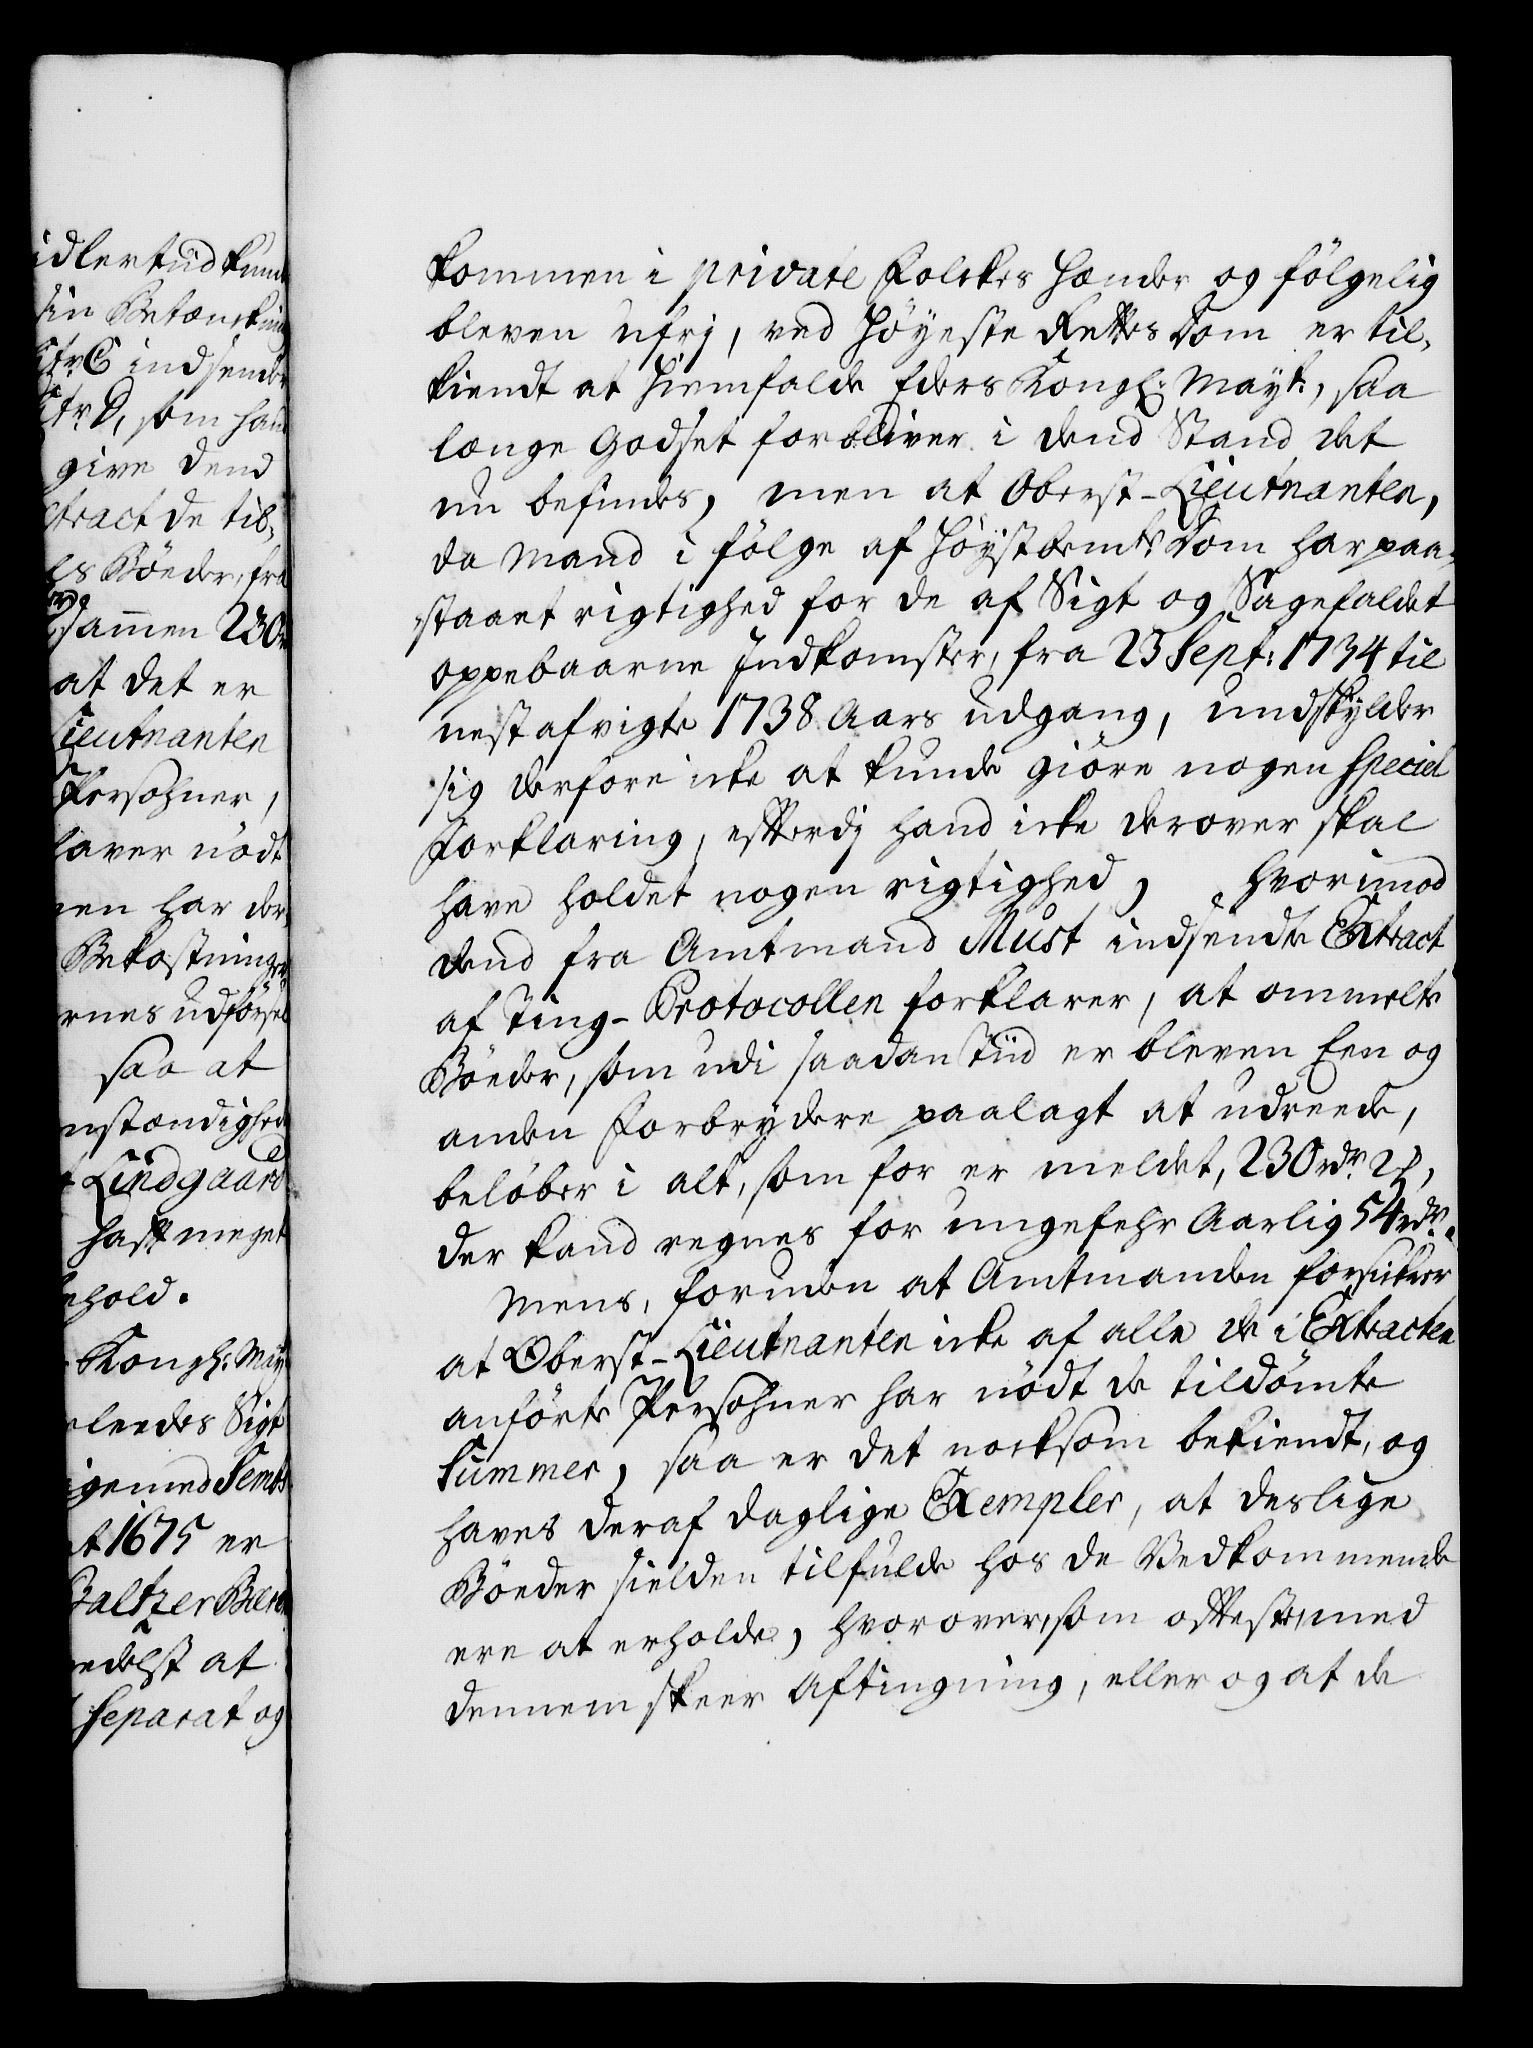 idlertiid kund
sin Betænkning
Litr: C indsender
Litr: D, som hand
give dend
xtract de til-
ls Böeder, fra
sammen 230
at det er
Lieutnanten
Persohner,
laver nödt
en har der
Bekostninger
rnes udförsel
saa at
nstændighed
Lindgaard
haft meget
ehold.
Kongl: May
leedes Sigt
igemed Semb
t 1675 er
Baltzer Bær
edelst at
Separat og
kommen i private Folckes Hænder og fölgelig
bleven ufrj, ved Höyeste Rettes Dom er til-
kiendt at hiemfalde Eders Kongl: Mayt:, saa
længe Godset forbliver i dend Stand det
nu befindes, men at Oberst-Lieutnanten,
da Mand i fölge af Höystbemte Dom har paa-
staaet rigtighed for de af Sigt og Sagefaldet
oppebaarne Indkomster, fra 23 Sept: 1734 til
nest afvigte 1738 Aars udgang, undskylder
sig derfore icke at kunde giöre nogen Speciel
Forklaring, efterdj hand icke derover skal
have holdet nogen rigtighed, hvorimod
dend fra Amtmand Must indsendte Extract
af Ting-Protocollen forklarer, at ommelte
Böeder, som udi saadan Tiid er bleven Een og
anden Forbrydere paalagt at udreede,
belöber i alt, som for er meldet, 230 rdr. 2 ß,
der kand regnes for ungefehr Aarlig 54 rdr.
Mens, foruden at Amtmanden forsikrer
at Oberst-Lieutnanten icke af alle de i Extracten
anförte Persohner har nödt de tildömte
Summer, saa er det nocksom bekiendt, og
haves deraf daglige Exempler, at deslige
Böeder sielden tilfulde hos de Vedkommende
ere at erholde, hvorover, som oftest, med
dennem skeer Aftingning, eller og at de